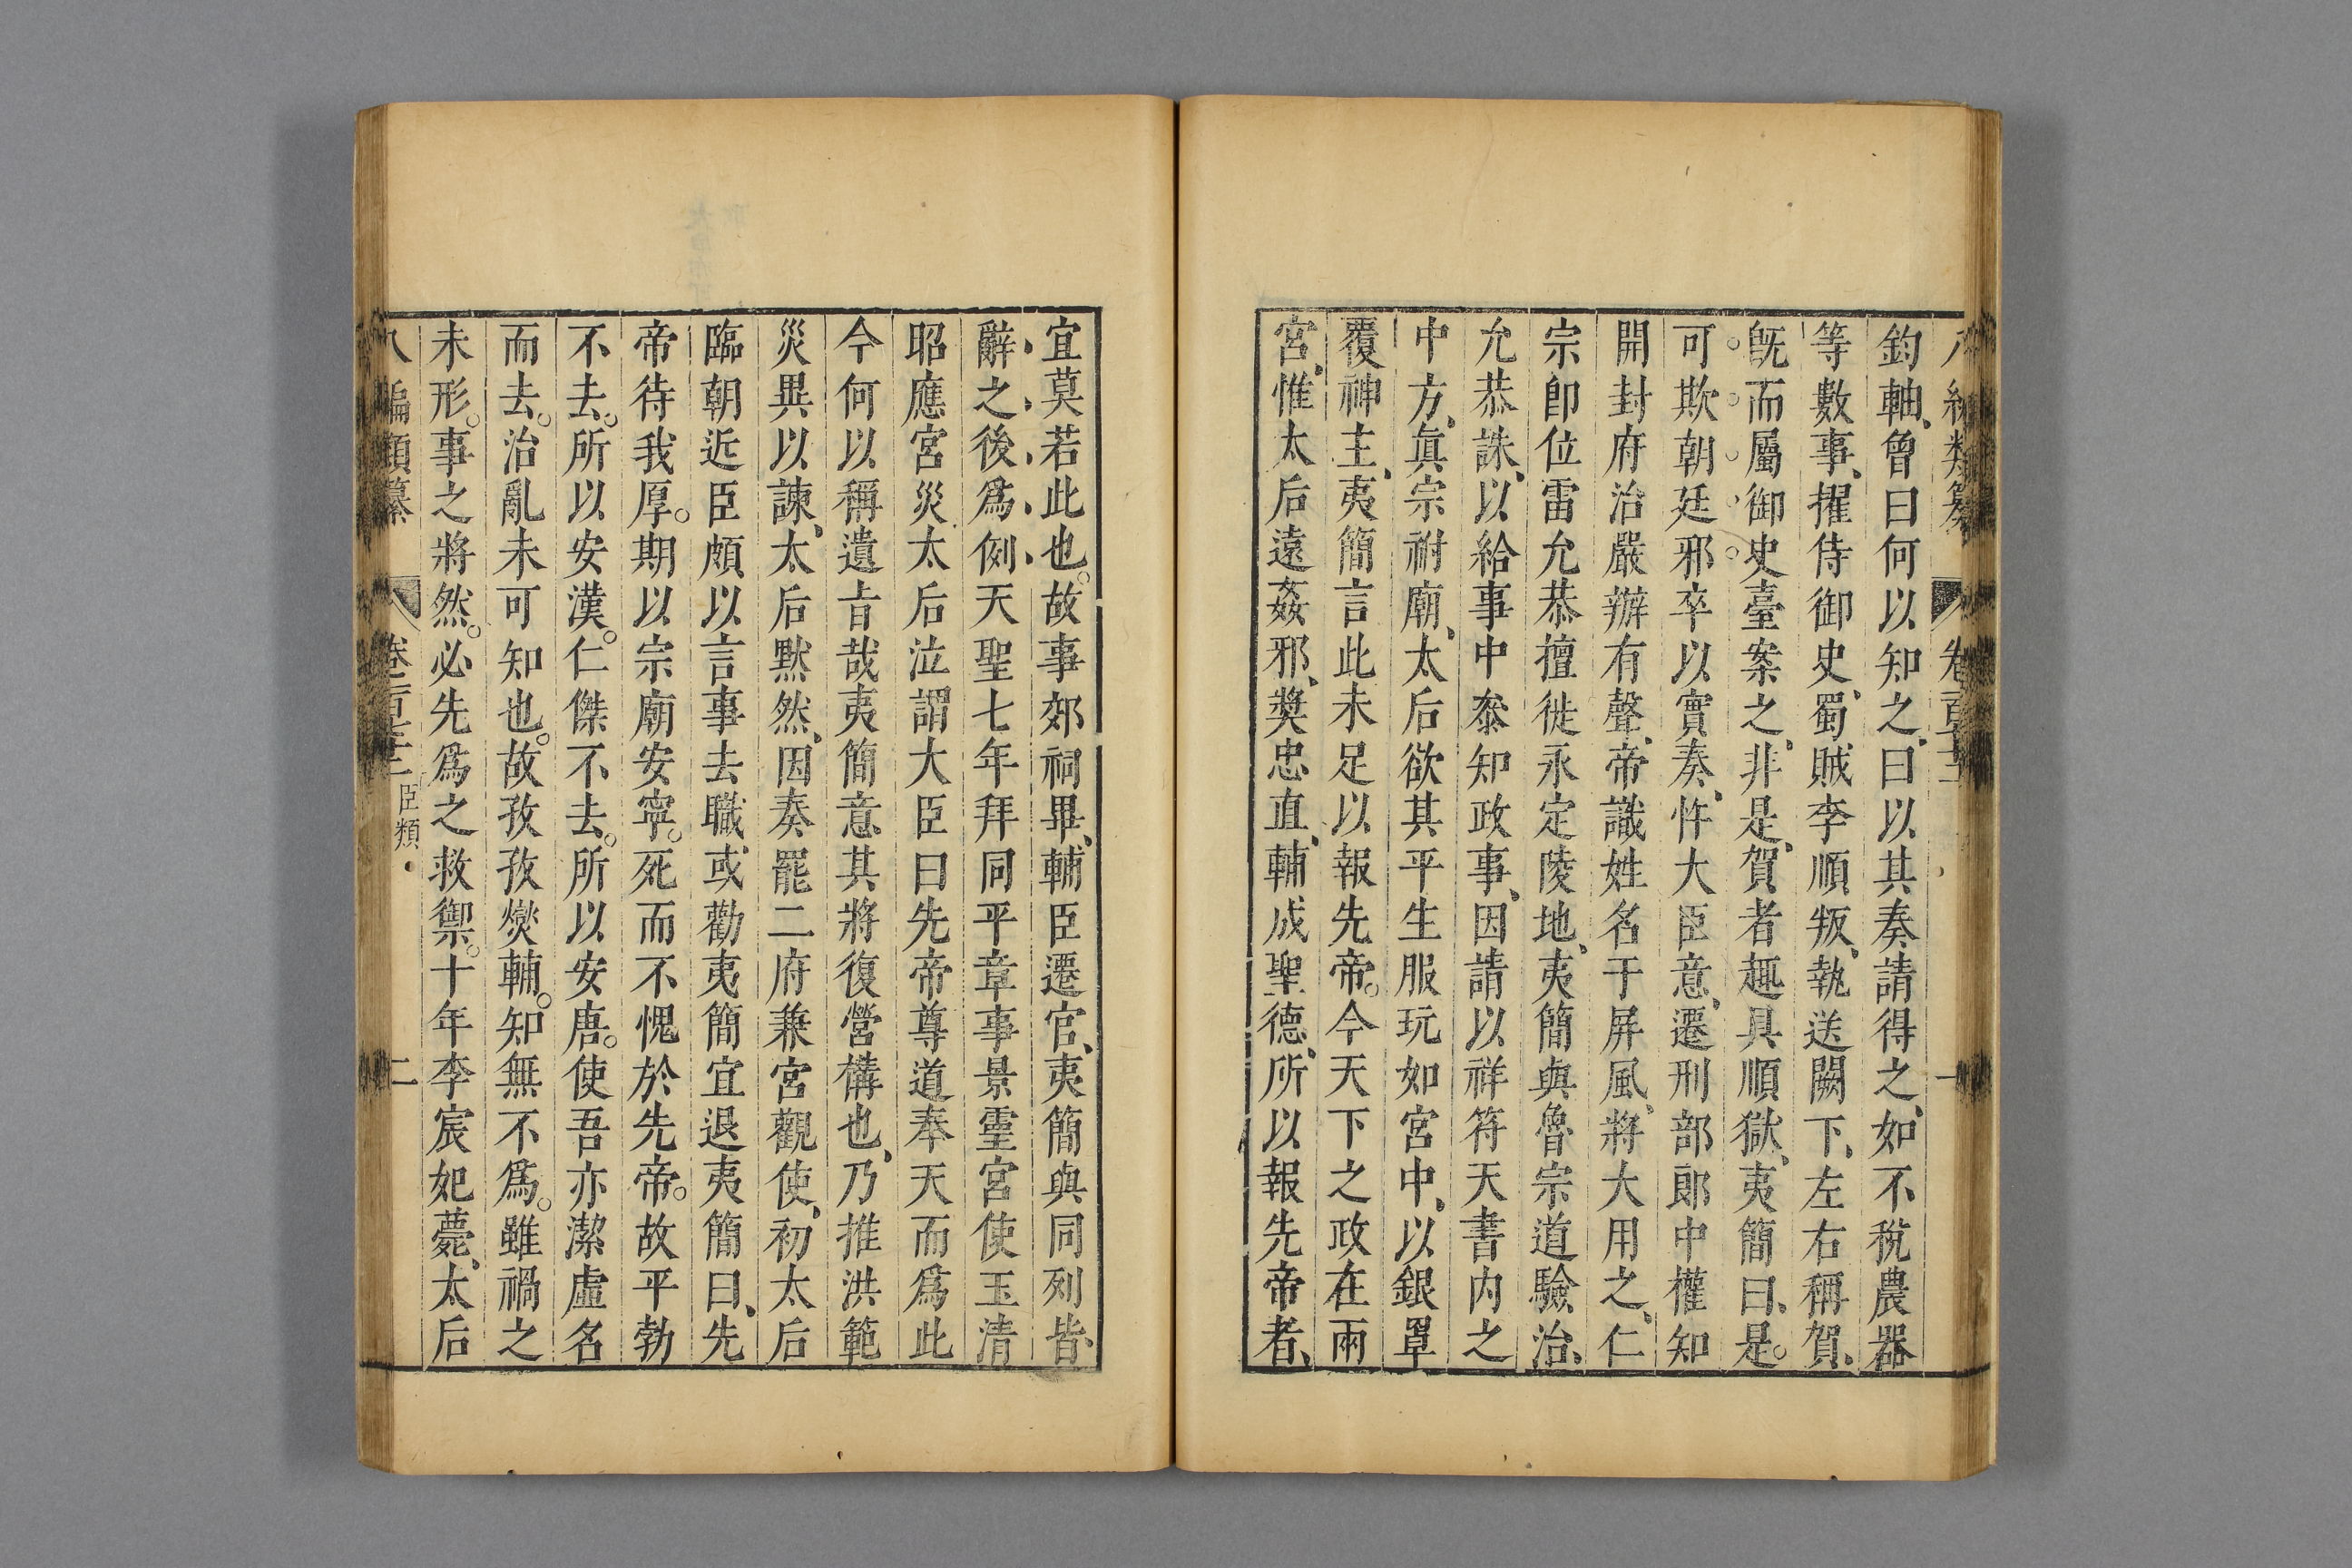 鈞軸曾曰何以知之曰以其奏請得之如不稅農器
等數事擢侍御史蜀賊李順叛執送闕下左右稱賀
旣而屬御史臺案之非是賀者趣具順獄夷簡曰是
可欺朝廷邪卒以實奏忤大臣意遷刑部郎中權知
開封府治嚴辦有聲帝識姓名于屏風將大用之仁
宗卽位雷允恭擅徙永定陵地夷簡與魯宗道驗治
允恭誅以給事中叅知政事因請以祥符天書内之
中方眞宗祔廟太后欲其平生服玩如宮中以銀罩
覆神主夷簡言此未足以報先帝今天下之政在兩
宮惟太后遠姦邪奬忠直輔成聖德所以報先帝者
宜莫若此也故事郊祠畢輔臣遷官夷簡與同列皆
辭之後爲例天聖七年拜同平章事景靈宮使玉清
昭應宮災太后泣謂大臣曰先帝尊道奉天而爲此
今何以稱遺旨哉夷簡意其將復營構也乃推洪範
災異以諫太后默然因奏罷二府兼宮觀使初太后
臨朝近臣頗以言事去職或勸夷簡宜退夷簡曰先
帝待我厚期以宗廟安寧死而不愧於先帝故平勃
不去所以安漢仁傑不去所以安唐使吾亦潔虛名
而去治亂未可知也故孜孜爕輔知無不爲雖禍之
未形事之將然必先爲之救禦十年李宸妃薨太后
八編類纂 臣類 二